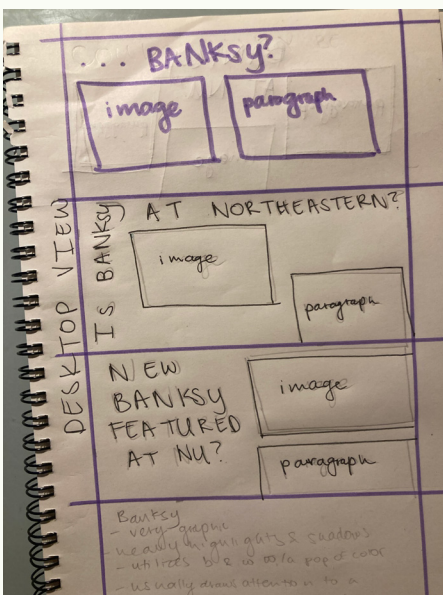 ... BANKSY?
image
paragraph
DESKTOP VIEW
IS BANKSY
AT NORTHEASTERN?
image
paragraph
NEW
BANKSY
FEATURED
AT NU?
image
paragraph
Banksy
- very graphic
- heavy highlights &
- utilizes b&w a pop of color
- usually draws attention to a